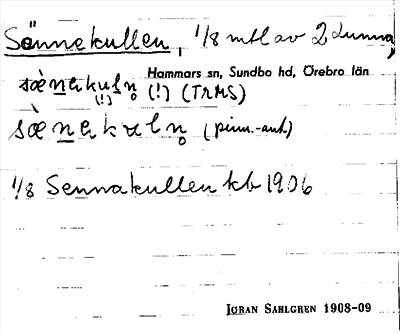 Sännekullen, 1/8 mtl av 2 Lunna,
Hammars sn, Sundbo hd, Örebro län
sæ̀nakuln̥ (!) (TRMS)
(!)
sæ̀nakuln̥ (pinn.-ant)
1/8 Sennakullen kb 1906
JÖRAN SAHLGREN 1908-09